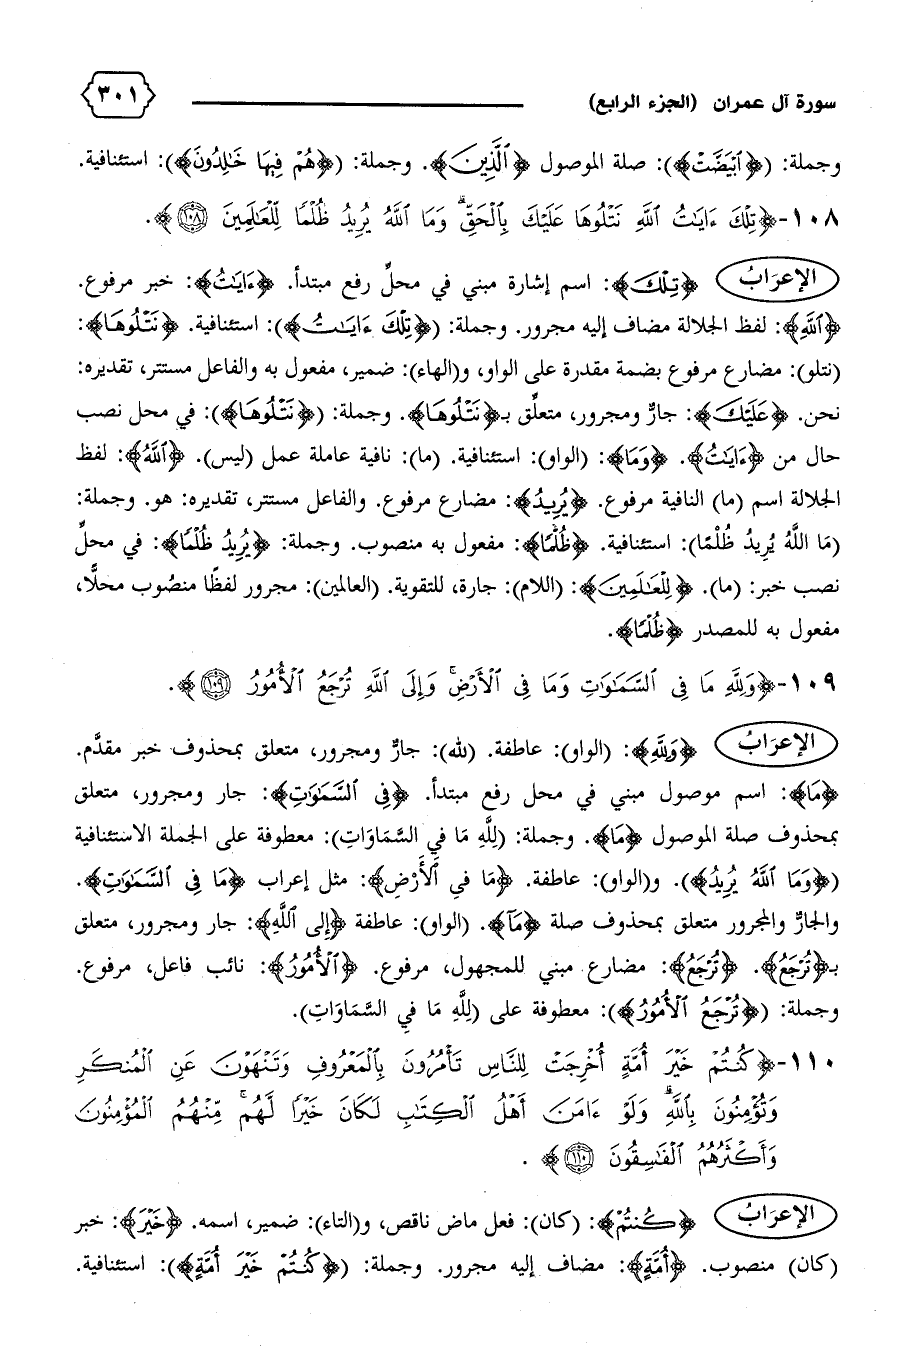 سورة آل عمران (الجزء الرابع) ٣٠١
وجملة: (﴿ٱبۡيَضَّتۡ﴾): صلة الموصول ﴿ٱلَّذِينَ﴾. وجملة: (﴿هُمۡ فِيهَا خَٰلِدُونَ﴾): استئنافية.
١٠٨-﴿تِلۡكَ ءَايَٰتُ ٱللَّهِ نَتۡلُوهَا عَلَيۡكَ بِٱلۡحَقِّۗ وَمَا ٱللَّهُ يُرِيدُ ظُلۡمٗا لِّلۡعَٰلَمِينَ ١٠٨﴾.
الإعرَابُ ﴿تِلۡكَ﴾: اسم إشارة مبني في محلِّ رفع مبتدأ. ﴿ءَايَٰتُ﴾: خبر مرفوع.
﴿ٱللَّهِ﴾: لفظ الجلالة مضاف إليه مجرور. وجملة: (﴿تِلۡكَ ءَايَٰتُ﴾): استئنافية. ﴿نَتۡلُوهَا﴾:
(نتلو): مضارع مرفوع بضمة مقدرة على الواو، و(الهاء): ضمير، مفعول به والفاعل مستتر، تقديره:
نحن. ﴿عَلَيۡكَ﴾: جارٌّ ومجرور، متعلِّق بـ﴿نَتۡلُوهَا﴾. وجملة: (﴿نَتۡلُوهَا﴾): في محل نصب
حال من ﴿ءَايَٰتُ﴾. ﴿وَمَا﴾: (الواو): استئنافية. (ما): نافية عاملة عمل (ليس). ﴿ٱللَّهُ﴾: لفظ
الجلالة اسم (ما) النافية مرفوع. ﴿يُرِيدُ﴾: مضارع مرفوع. والفاعل مستتر، تقديره: هو. وجملة:
(مَا اللَّهُ يُرِيدُ ظُلْمًا): استئنافية. ﴿ظُلۡمٗا﴾: مفعول به منصوب. وجملة: ﴿يُرِيدُ ظُلۡمٗا﴾: في محلِّ
نصب خبر: (ما). ﴿لِّلۡعَٰلَمِينَ﴾: (اللام): جارة، للتقوية. (العالمين): مجرور لفظًا منصُوب محلًّا،
مفعول به للمصدر ﴿ظُلۡمٗا﴾.
١٠٩-﴿وَلِلَّهِ مَا فِي ٱلسَّمَٰوَٰتِ وَمَا فِي ٱلۡأَرۡضِۚ وَإِلَى ٱللَّهِ تُرۡجَعُ ٱلۡأُمُورُ ١٠٩﴾.
الإعرَابُ ﴿وَلِلَّهِ﴾: (الواو): عاطفة. (لله): جارٌّ ومجرور، متعلق بمحذوف خبر مقدَّم.
﴿مَا﴾: اسم موصول مبني في محل رفع مبتدأ. ﴿فِي ٱلسَّمَٰوَٰتِ﴾: جار ومجرور، متعلق
بمحذوف صلة الموصول ﴿مَا﴾. وجملة: (لِلَّهِ مَا فِي السَّمَاوَاتِ): معطوفة على الجملة الاستئنافية
(﴿وَمَا ٱللَّهُ يُرِيدُ﴾). و(الواو): عاطفة. ﴿مَا فِي ٱلۡأَرۡضِ﴾: مثل إعراب ﴿مَا فِي ٱلسَّمَٰوَٰتِ﴾.
والجارُّ والمجرور متعلق بمحذوف صلة ﴿مَآ﴾. (الواو): عاطفة ﴿إِلَى ٱللَّهِ﴾: جار ومجرور، متعلق
بـ﴿تُرۡجَعُ﴾. ﴿تُرۡجَعُ﴾: مضارع مبني للمجهول، مرفوع. ﴿ٱلۡأُمُورُ﴾: نائب فاعل، مرفوع.
وجملة: (﴿تُرۡجَعُ ٱلۡأُمُورُ﴾): معطوفة على (لِلَّهِ مَا فِي السَّمَاوَاتِ).
١١٠-﴿كُنتُمۡ خَيۡرَ أُمَّةٍ أُخۡرِجَتۡ لِلنَّاسِ تَأۡمُرُونَ بِٱلۡمَعۡرُوفِ وَتَنۡهَوۡنَ عَنِ ٱلۡمُنكَرِ
وَتُؤۡمِنُونَ بِٱللَّهِۗ وَلَوۡ ءَامَنَ أَهۡلُ ٱلۡكِتَٰبِ لَكَانَ خَيۡرٗا لَّهُمۚ مِّنۡهُمُ ٱلۡمُؤۡمِنُونَ
وَأَكۡثَرُهُمُ ٱلۡفَٰسِقُونَ ١١٠﴾.
الإعرَابُ ﴿كُنتُمۡ﴾: (كان): فعل ماض ناقص، و(التاء): ضمير، اسمه. ﴿خَيۡرَ﴾: خبر
(كان) منصوب. ﴿أُمَّةٍ﴾: مضاف إليه مجرور. وجملة: (﴿كُنتُمۡ خَيۡرَ أُمَّةٍ﴾): استئنافية.